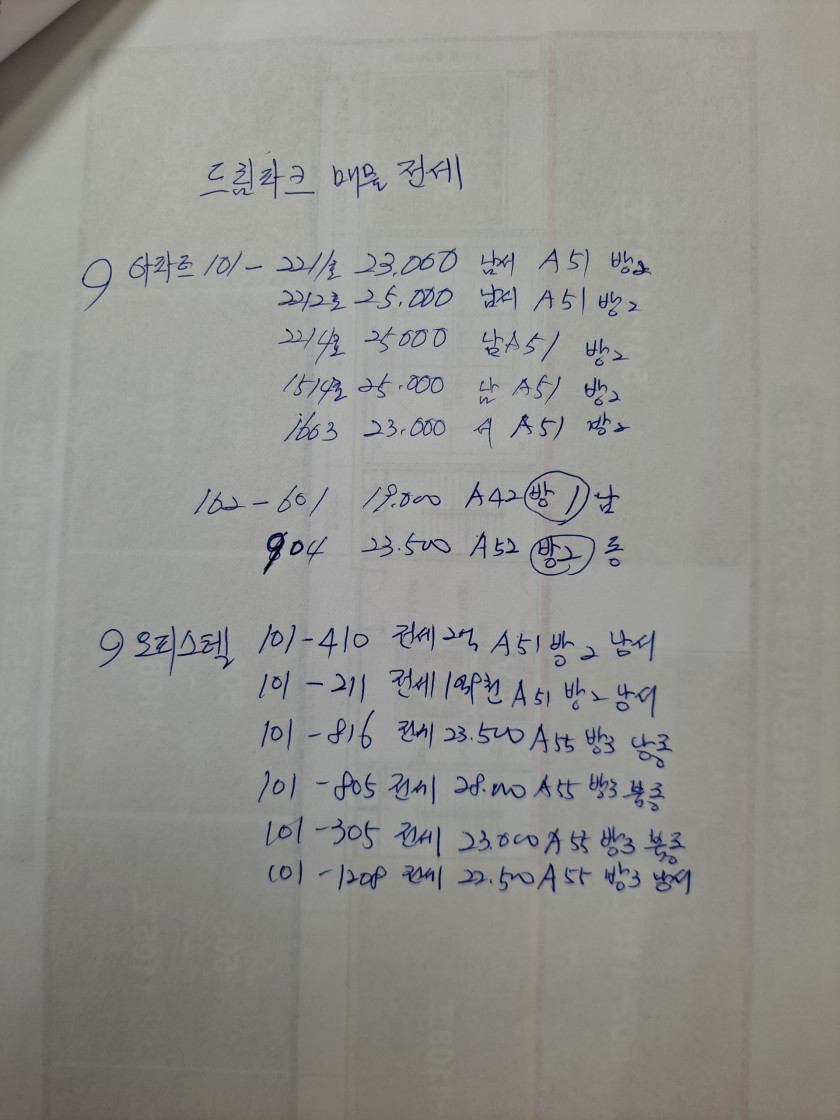 드림파크 매물 전세
9 아파트 101 - 2211호 23.000 남서 A51 방2
2212호 25.000 남서 A51 방2
2214호 25000 남 A51 방2
1514호 25.000 남 A51 방2
1603 23.000 서 A51 방2
102 - 601 19.000 A42 방1 남
904 23.500 A52 방2 동
9 오피스텔 101 - 410 전세 2억 A51 방2 남서
101 - 211 전세 1억9천 A51 방2 남서
101 - 816 전세 23.500 A55 방3 남동
101 - 805 전세 28.000 A55 방3 북동
101 - 305 전세 23.000 A55 방3 북동
101 - 1208 전세 22.500 A55 방3 남서